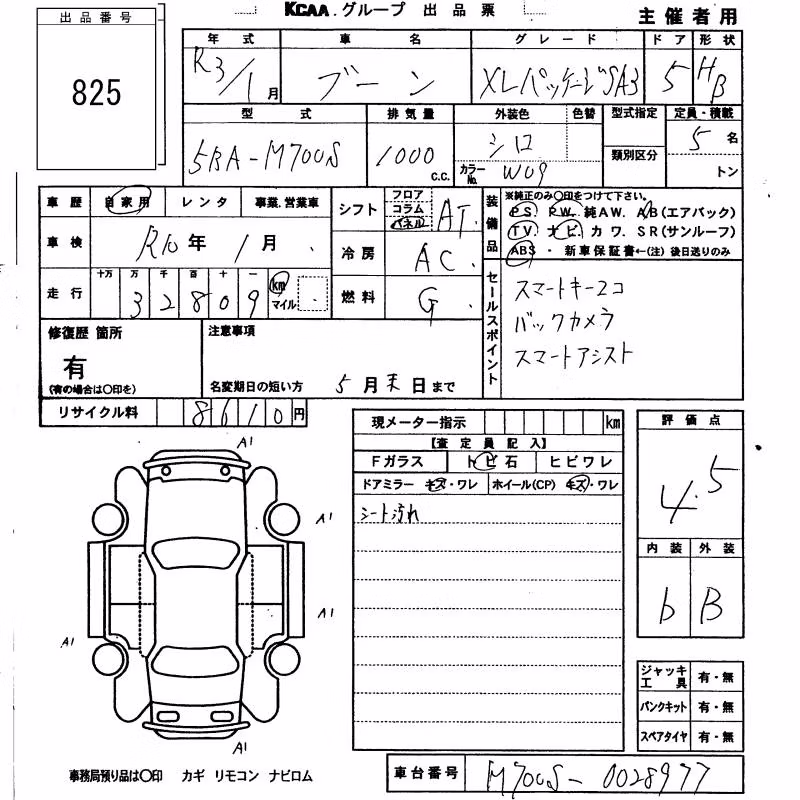 KCAA.グループ 出品票
主催者用
出品番号
825
年式 車名 グレード ドア 形状
R3/1月 ブーン XLパッケージSA3 5 HB
型式 排気量 外装色 色替 型式指定 定員・積載
5BA-M700S 1000 c.c. シロ 類別区分 5名
カラーNo. W09 トン
車歴 自家用 レンタ 事業.営業車
車検 R10年 1月
走行 十万 万 千 百 十 一
3 2 8 0 9 km マイル
シフト フロア コラム パネル AT
冷房 AC
燃料 G
装備品
※純正のみ○印をつけて下さい。
PS. PW. 純AW. AB(エアバック)
TV. ナビ. カワ. SR(サンルーフ)
ABS ・ 新車保証書←(注)後日送りのみ
セールスポイント
スマートキー2コ
バックカメラ
スマートアシスト
修復歴 箇所
有
(有の場合は○印を)
注意事項
名変期日の短い方 5月末日まで
リサイクル料 8610円
現メーター指示 km
【査定員記入】
Fガラス トビ石 ヒビワレ
ドアミラー キズ・ワレ ホイール(CP) キズ・ワレ
シート汚れ
評価点
4.5
内装 外装
b B
A1
A1
A1
A1
A1
ジャッキ工具 有・無
パンクキット 有・無
スペアタイヤ 有・無
事務局預り品は○印 カギ リモコン ナビロム
車台番号 M700S-0028977